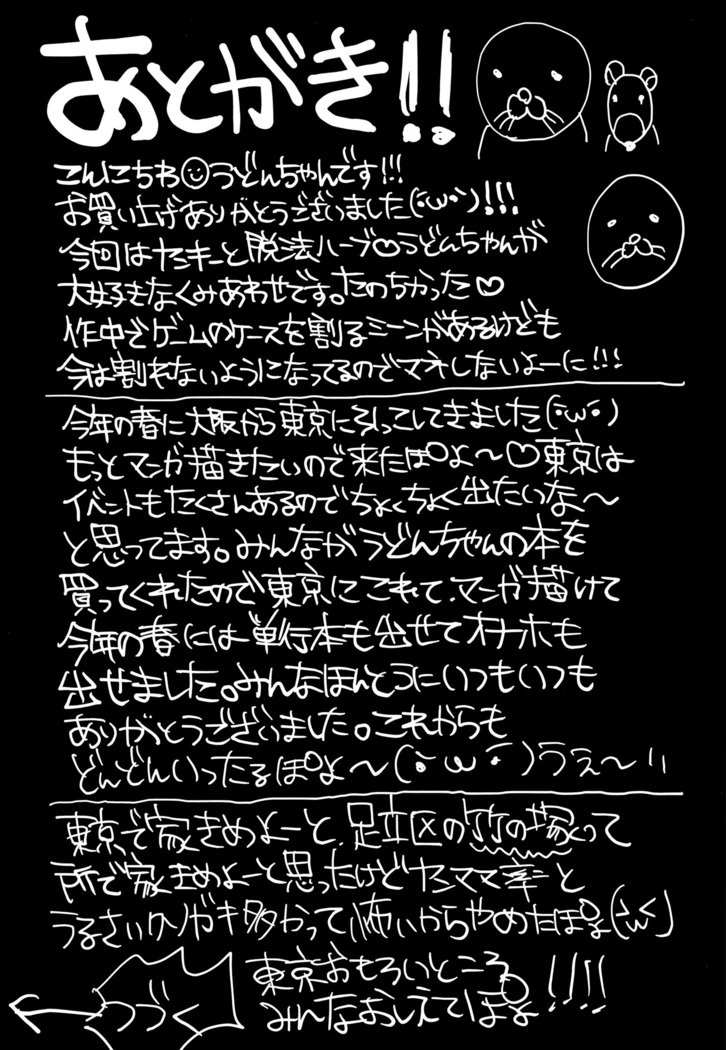 あとがき!!
こんにちわ☺うどんちゃんです!!!
お買い上げありがとうございました(´･ω･`)!!!
今回はヤンキーと脱法ハーブ♡うどんちゃんが
大好きなくみあわせです。たのちかった♡
作中でゲームのケースを割るシーンがあるけども
今は割れないようになってるのでマネしないよーに!!!
今年の春に大阪から東京に引っこしてきました(´･ω･`)
もっとマンガ描きたいので来たぽよ〜♡東京は
イベントもたくさんあるのでちょくちょく出たいな〜
と思ってます。みんながうどんちゃんの本を
買ってくれたので東京にこれて、マンガ描けて
今年の春には単行本も出せてオナホも
出せました。みんなほんとうにいつもいつも
ありがとうございました。これからも
どんどんいったるぽよ〜(´･ω･`)うぇ〜!!
東京で家きめよーと、足立区の竹の塚って
所で家きめよーと思ったけどヤンママ率と
うるさいクソガキ多かって怖いからやめたぽよ(´;ω;`)
東京おもろいところ
みんなおしえてぽよ!!!!
つづく